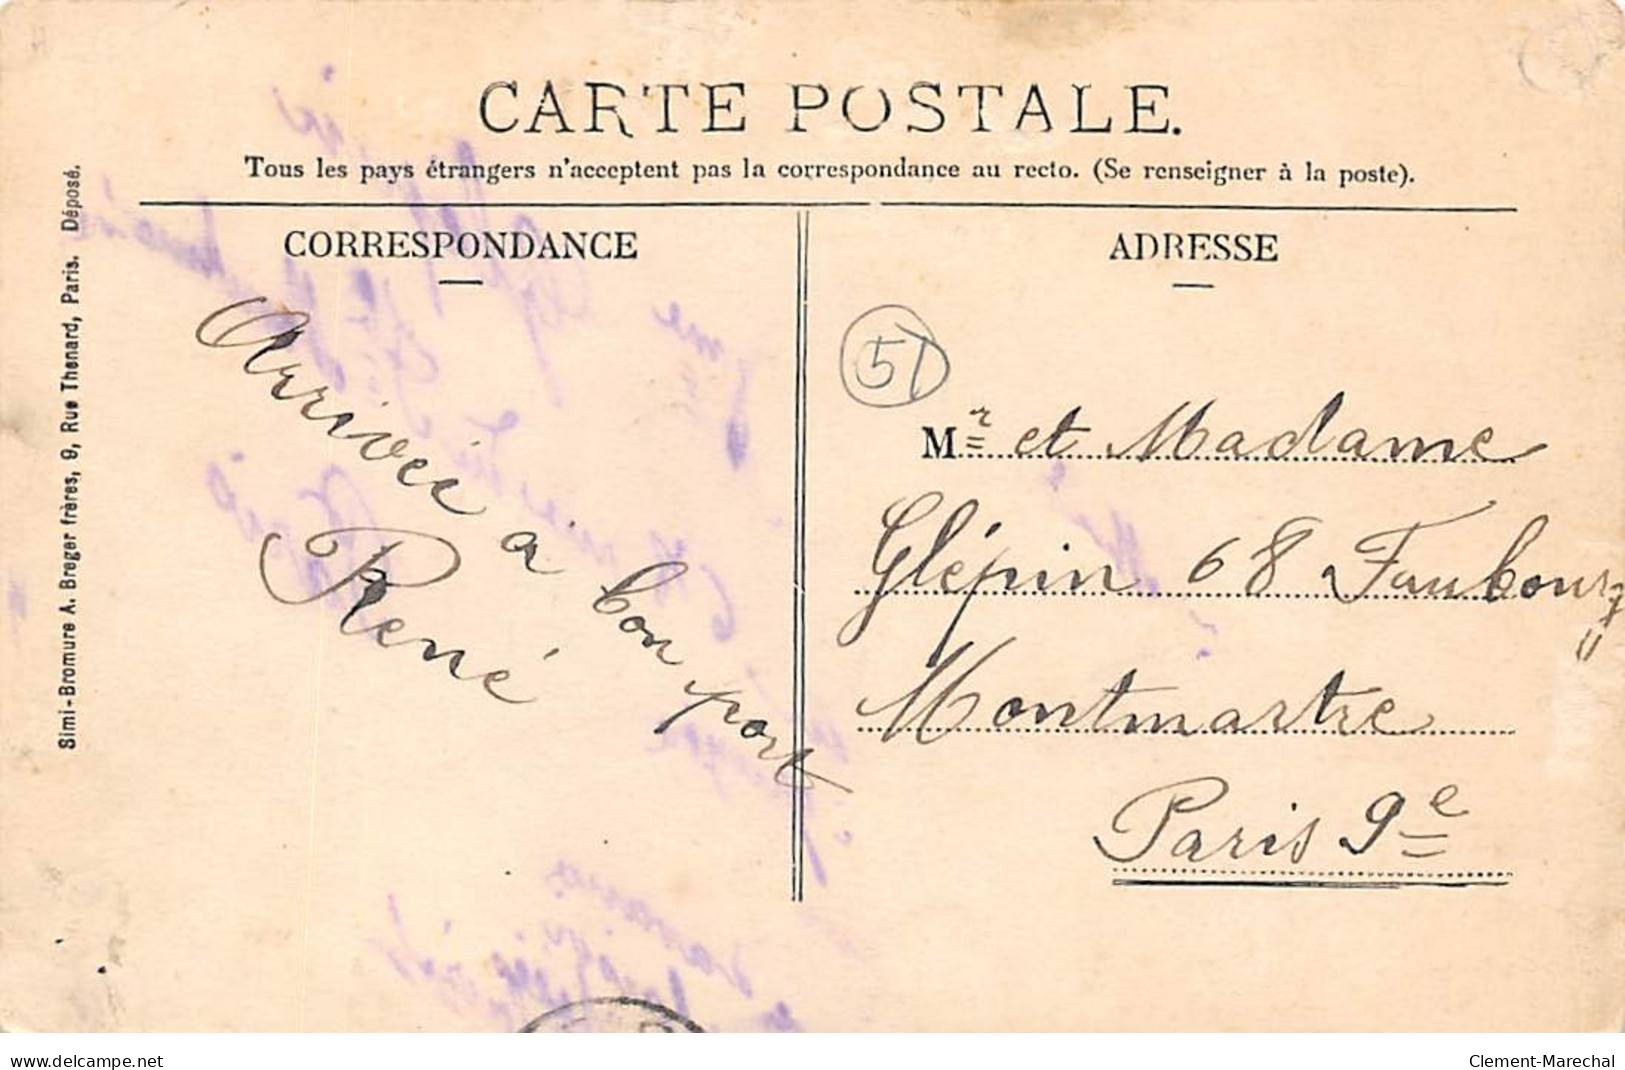 CARTE POSTALE.
Tous les pays étrangers n'acceptent pas la correspondance au recto. (Se renseigner à la poste).
Simi-Bromure A. Breger frères, 9, Rue Thenard, Paris. Déposé.
CORRESPONDANCE
Arrivée à bon port
René
ADRESSE
51
Mr et Madame
Glépin 68 Faubourg
Montmartre
Paris 9e
www.delcampe.net
Clement-Marechal